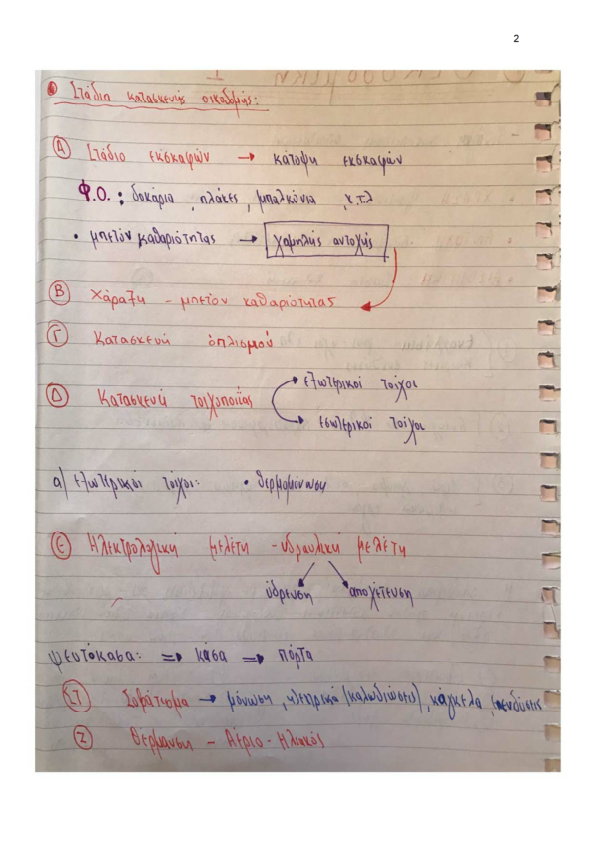 2
Στάδια κατασκευής οικοδομής:
Α Στάδιο εκσκαφών → κάτοψη εκσκαφών
Φ.Ο. : δοκάρια, πλάκες, μπαλκόνια, κ.τ.λ
• μπετόν καθαριότητας → χαμηλής αντοχής
Β Χάραξη - μπετόν καθαριότητας
Γ Κατασκευή οπλισμού
Δ Κατασκευή τοιχοποιΐας
εξωτερικοί τοίχοι
εσωτερικοί τοίχοι
α) εξωτερικοί τοίχοι: • θερμομόνωση
Ε Ηλεκτρολογική μελέτη - υδραυλική μελέτη
ύδρευση αποχέτευση
ψευτόκασα: ⇒ κάσα ⇒ πόρτα
ΣΤ Σοβάτισμα → μόνωση, ηλεκτρικά (καλωδιώσεις), κάγκελα, επενδύσεις
Ζ Θέρμανση - Αέριο - Ηλιακός